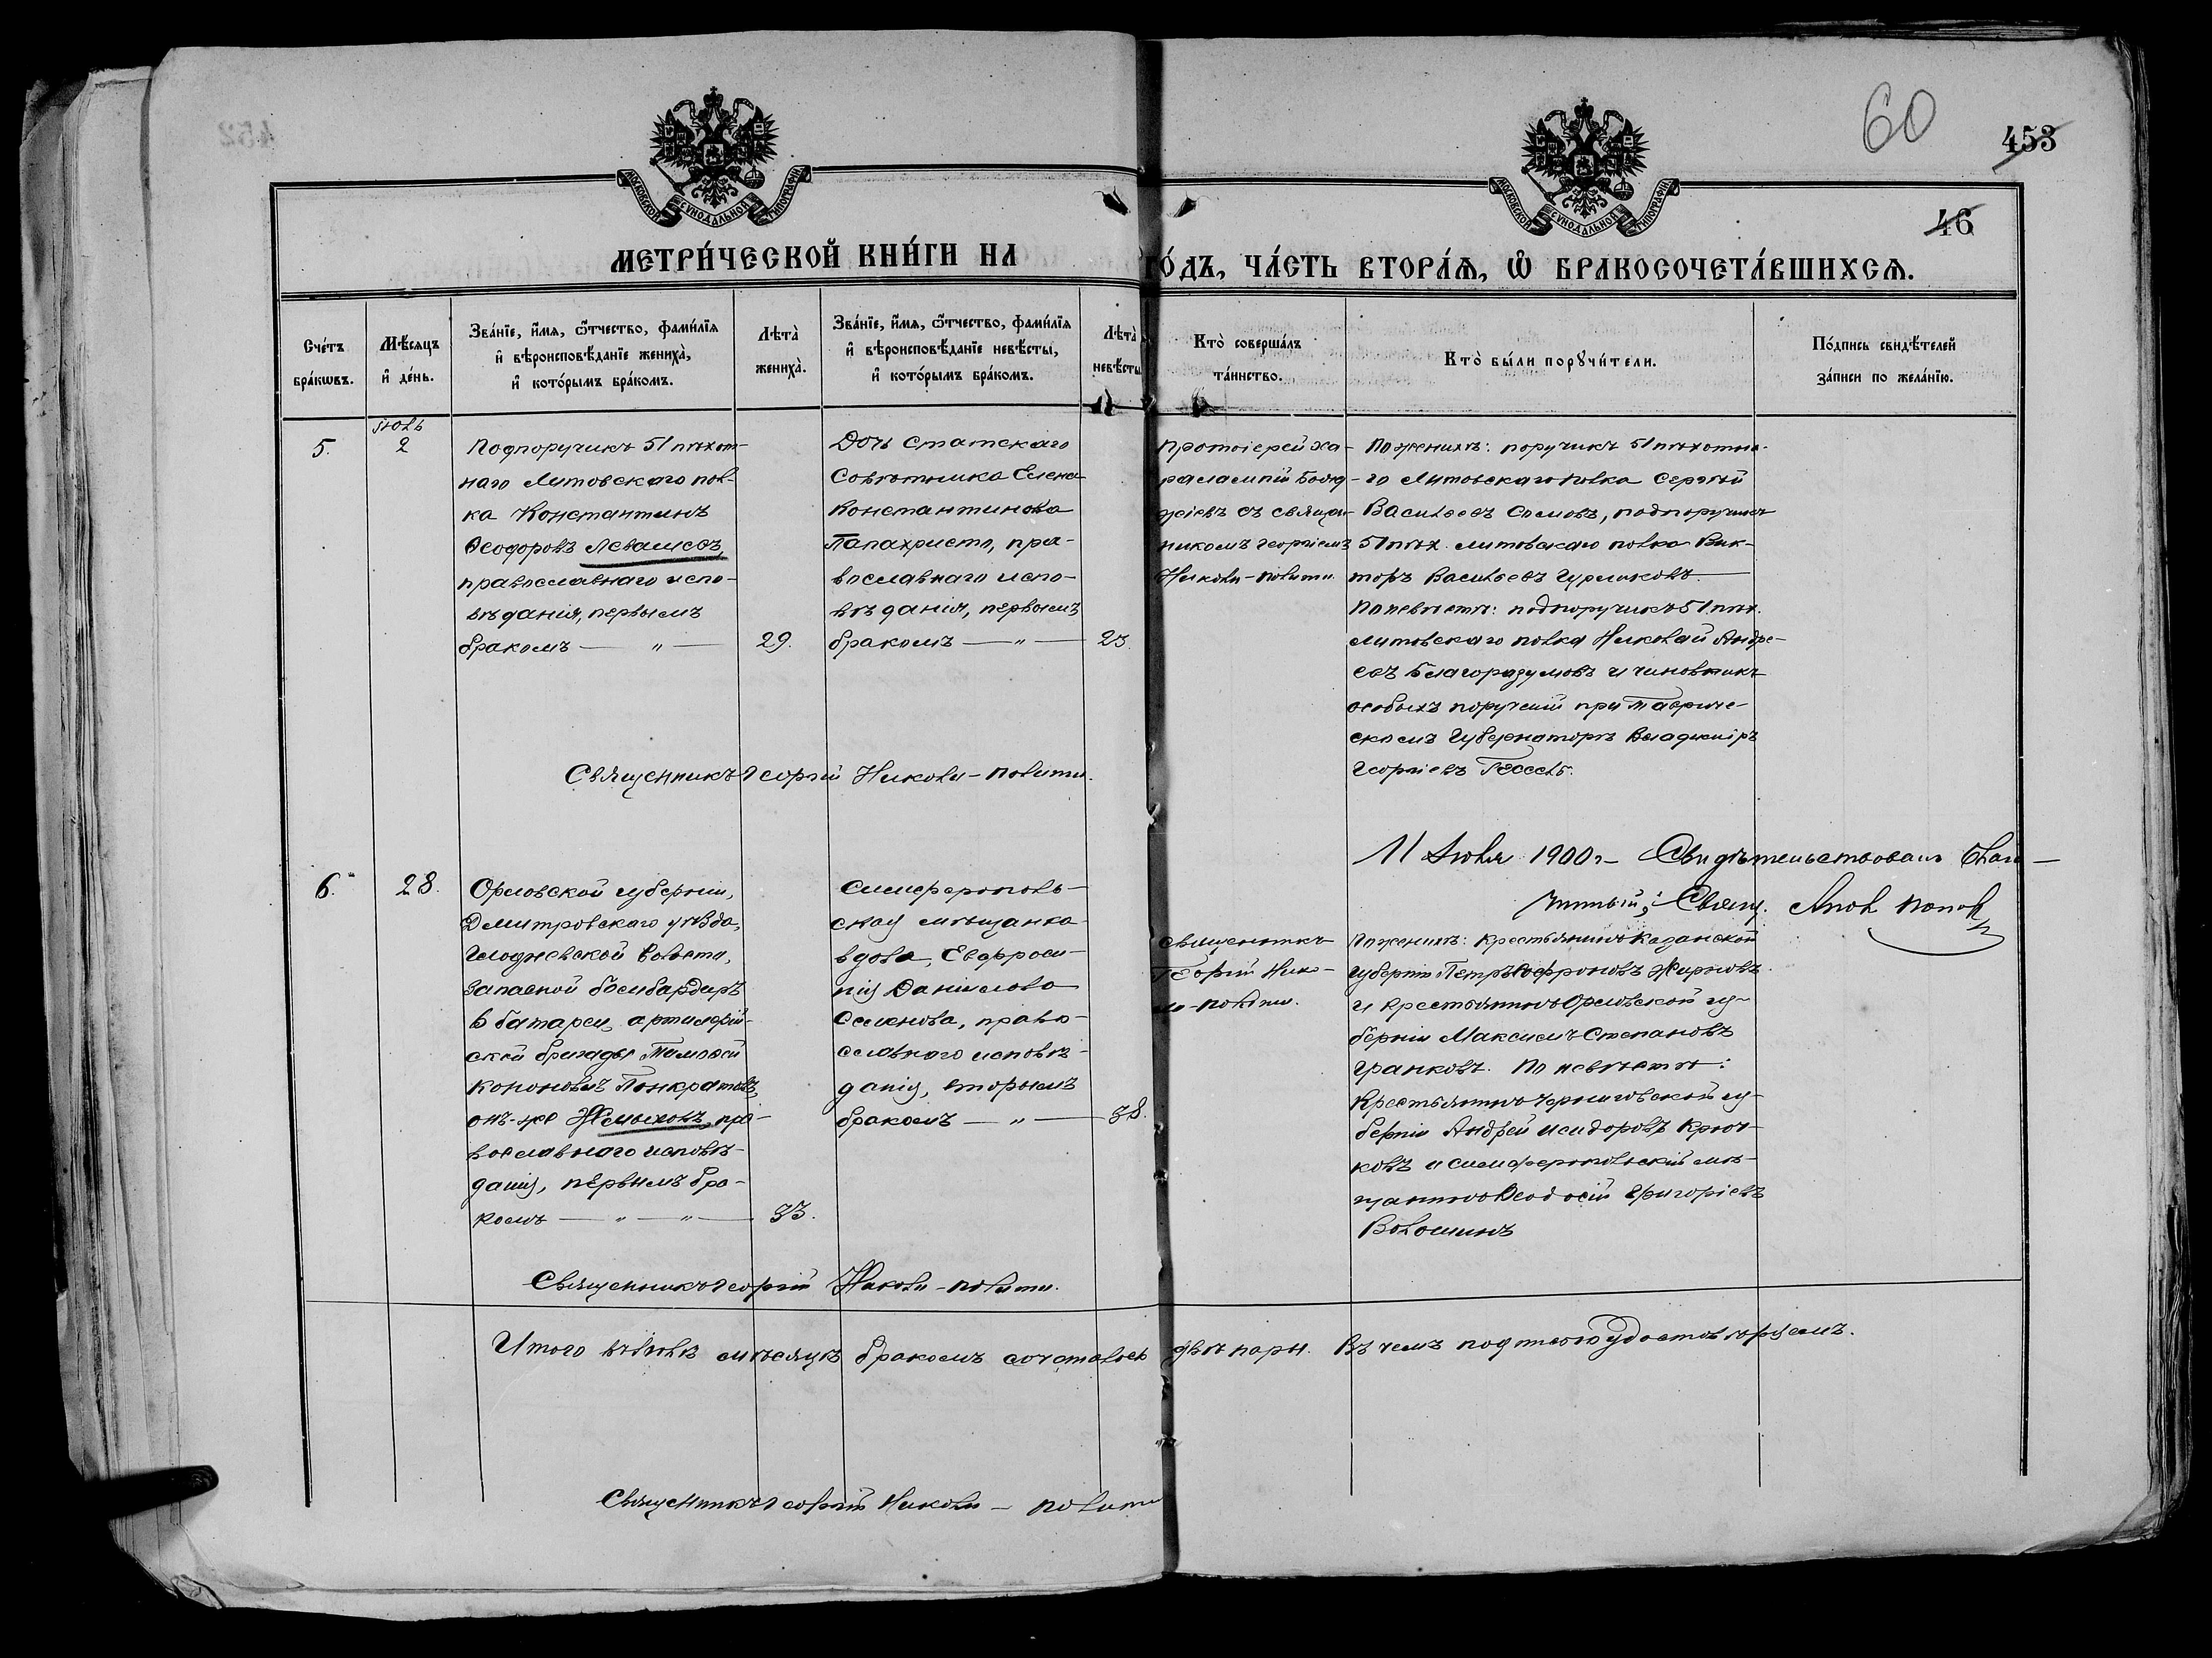 452
60
453
46
МОСКОВСКОЙ СУНОДАЛЬНОЙ ТИПОГРАФІИ
МОСКОВСКОЙ СУНОДАЛЬНОЙ ТИПОГРАФІИ
МЕТРИ́ЧЕСКОЙ КНИ́ГИ НА ГО́ДЪ, ЧА́СТЬ ВТОРА́Ѧ, Ѽ БРАКОСОЧЕТА́ВШИХСѦ.
Сче́тъ
бра́кѡвъ.
Мѣ́сяцъ
и҆ де́нь.
Зва́нїе, и҆́мя, ѻ҆́тчество, фами́лїя
и҆ вѣроисповѣ́данїе жениха̀,
и҆ кото́рымъ бра́комъ.
Лѣта̀
жениха̀.
Зва́нїе, и҆́мя, ѻ҆́тчество, фами́лїя
и҆ вѣроисповѣ́данїе невѣ́сты,
и҆ кото́рымъ бра́комъ.
Лѣта̀
невѣ́сты
Кто̀ соверша́лъ
та́инство.
Кто̀ бы́ли порꙋчи́тели.
По́дпись свидѣ́телей
за́писи по жела́нїю.
5.
Іюль
2
Подпоручикъ 51 пѣхот-
наго Литовскаго пол-
ка Константинъ
Ѳеодоровъ Левашевъ,
православнаго испо-
вѣданія, первымъ
бракомъ — " —
29.
Дочь Статскаго
Совѣтника Елена
Константинова
Папахристо, пра-
вославнаго испо-
вѣданія, первымъ
бракомъ — " —
23.
Протоіерей Ха-
ралампій
съ священ-
никомъ Георгіемъ
Николи-Полити.
По женихѣ: поручикъ 51 пѣхотна-
го Литовскаго полка Сергѣй
Васильевъ Сомовъ, подпоручикъ
51 пѣх. Литовскаго полка Вик-
торъ Васильевъ
По невѣстѣ: подпоручикъ 51 пѣх.
Литовскаго полка Николай Андре-
евъ Благоразумовъ и чиновникъ
особыхъ порученій при Тавриче-
скомъ Губернаторѣ Владиміръ
Георгіевъ Гессель.
Священникъ Георгій Николи-Полити.
11 Іюля 1900 г. — Свидѣтельствовалъ Благо-
чинный, Свящ. Попов
6.
28.
Орловской губерніи,
Дмитровскаго уѣзда,
Глодневской волости,
запасной бомбардиръ
6 батареи, артилерій-
ской бригады Тимофей
Кононовъ Понкратовъ,
онъ-же Жмыховъ, пра-
вославнаго исповѣ-
данія, первымъ бра-
комъ — " — " —
33.
Симферополь-
ская мѣщанка
вдова, Евфроси-
нія Данилова
Семенова, право-
славнаго исповѣ-
данія, вторымъ
бракомъ — " —
38.
Священникъ
Георгій Нико-
ли-Полити.
По женихѣ: крестьянинъ Казанской
губерніи Петръ Софроновъ Жирновъ
и крестьянинъ Орловской гу-
берніи Максимъ Степановъ
Гранковъ. По невѣстѣ:
Крестьянинъ Черниговской гу-
берніи Андрей Исидоровъ Крюч-
ковъ и симферопольскій мѣ-
щанинъ Ѳеодосій Григоріевъ
Волошинъ
Священникъ Георгій Николи-Полити.
Итого въ Іюлѣ мѣсяцѣ бракомъ сочеталось двѣ пары. Въ чемъ подписью удостовѣряемъ.
Священникъ Георгій Николи - Полити